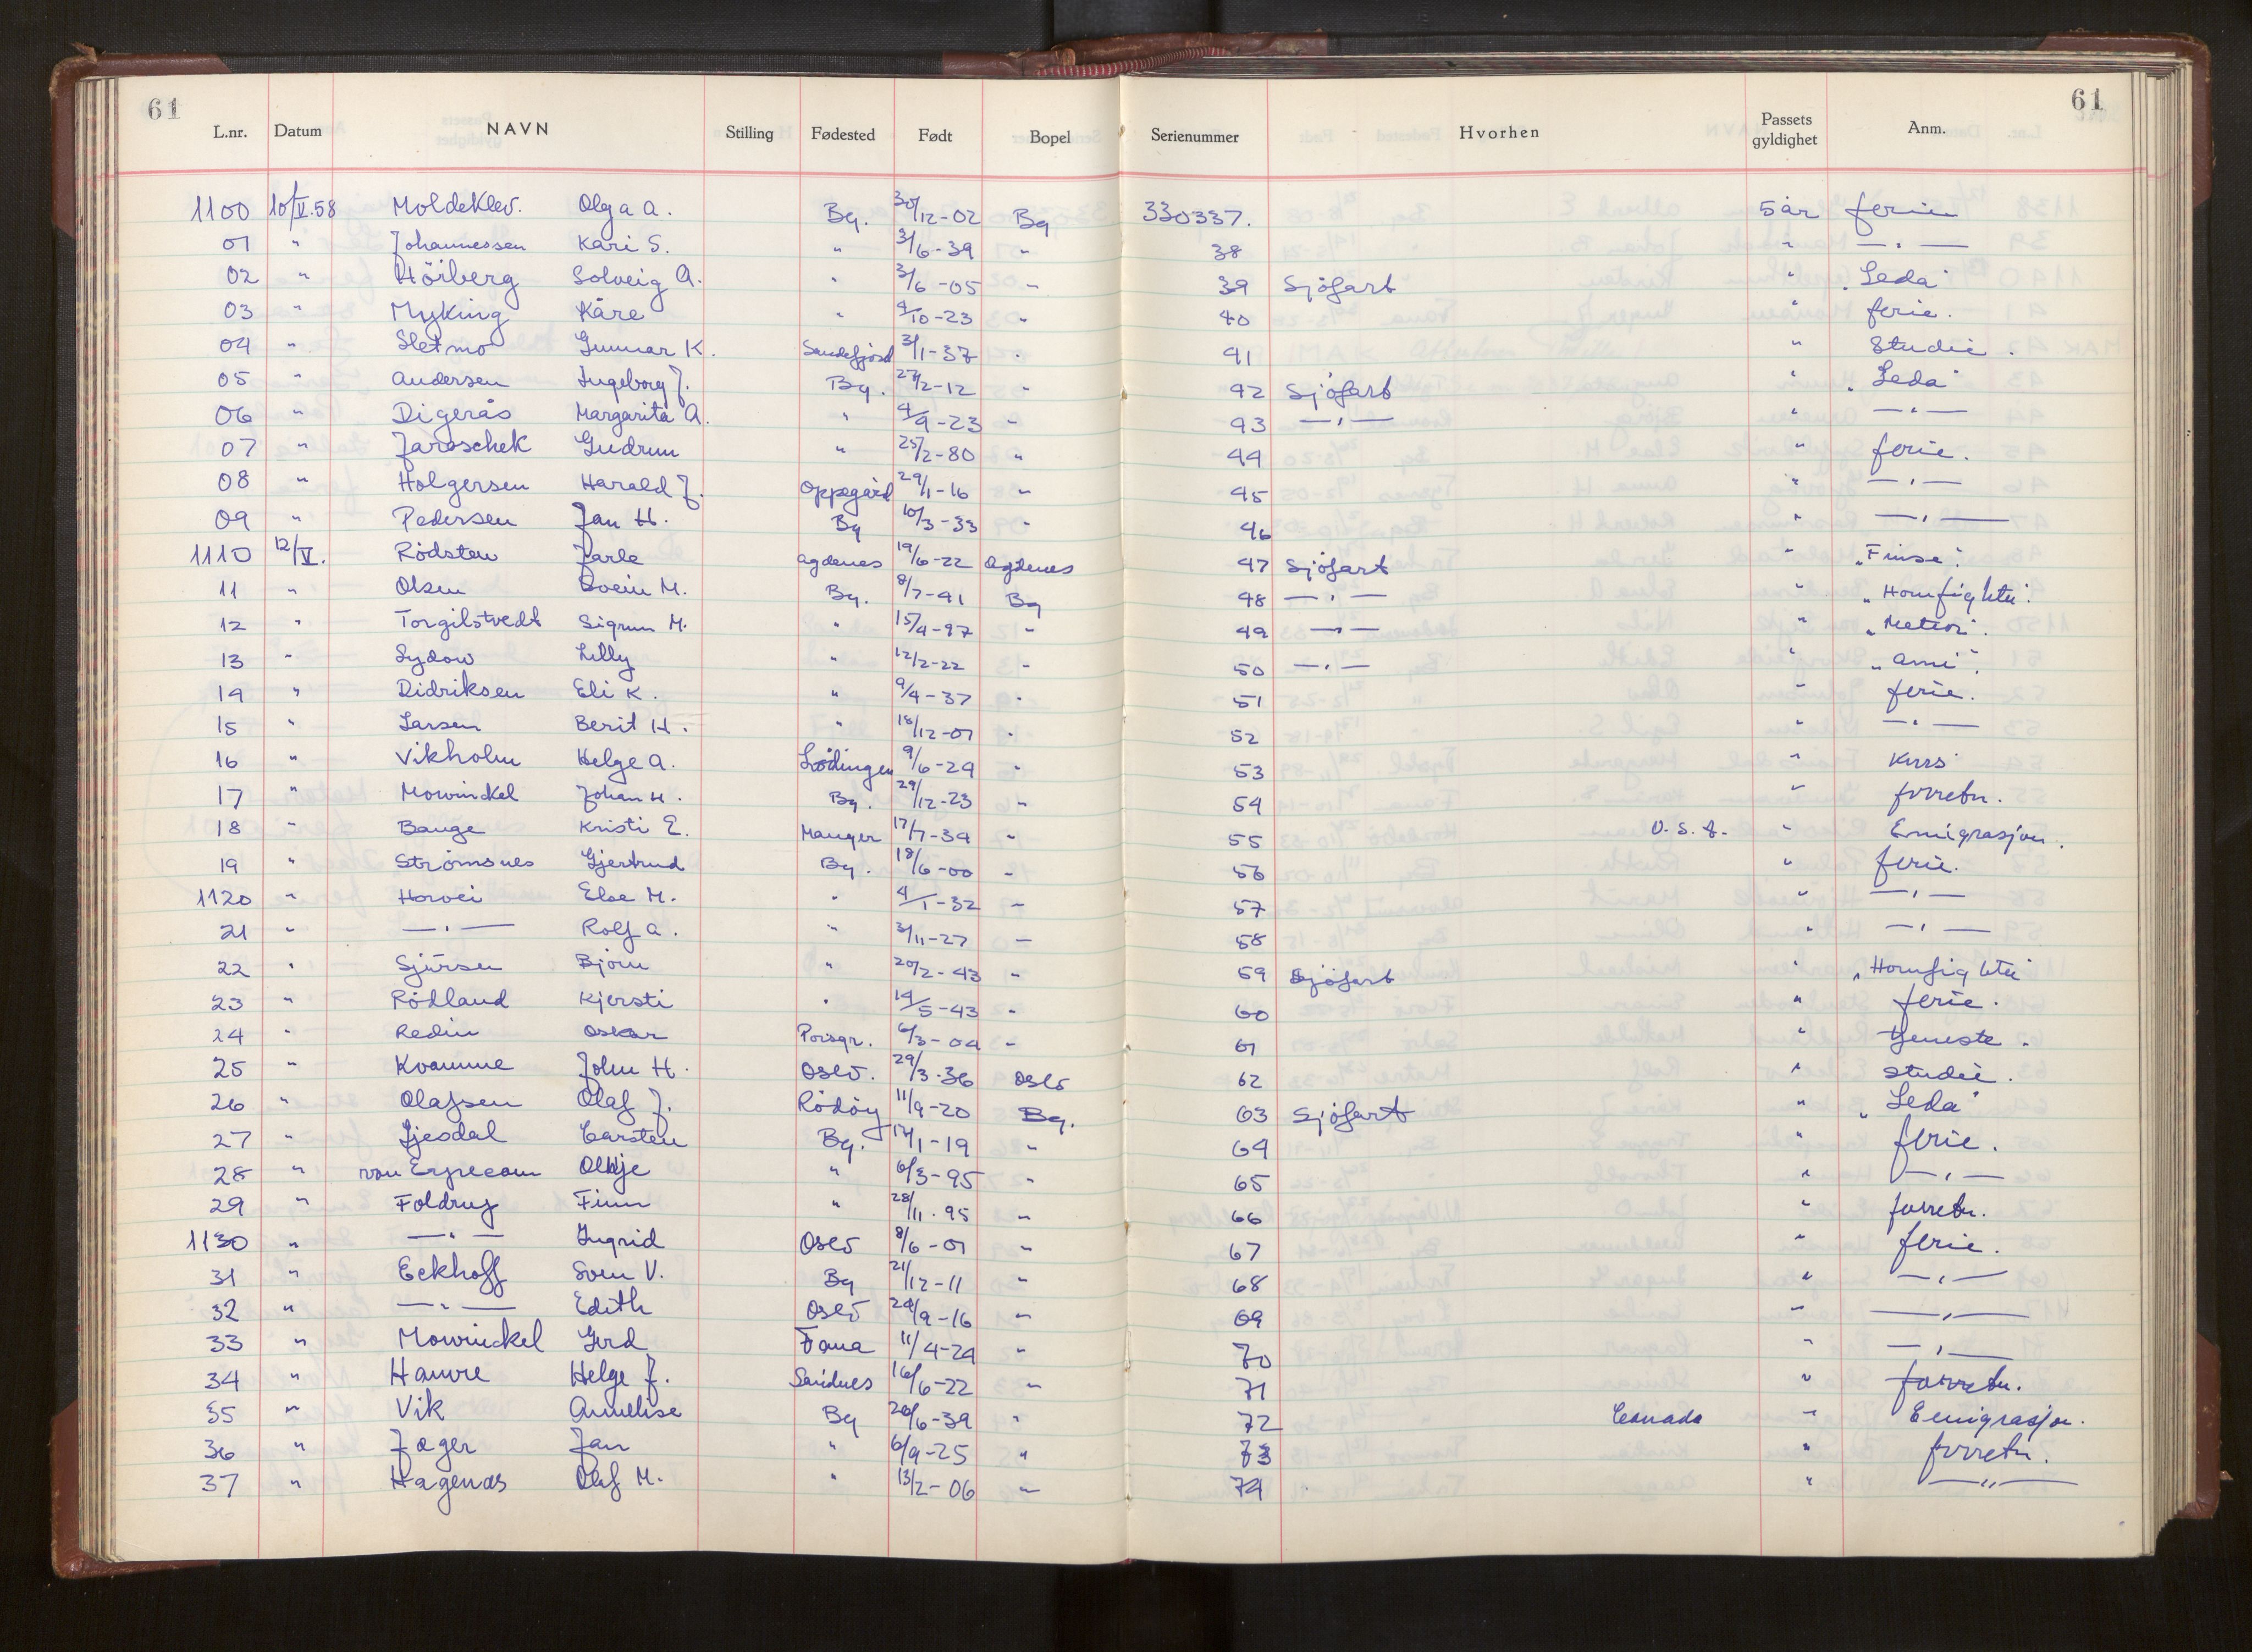 61 61
L.nr. Datum NAVN Stilling Fødested Født Bopel Serienummer Hvorhen Passets gyldighet Anm.
1100 10/V.58 Moldeklev. Olga A. Bg. 30/12-02 Bg 330337. 5 år ferie
01 " Johannessen Kari S. " 3/6-39 " 38 " —"—
02 " Höiberg Solveig A. " 3/6-05 " 39 Sjöfart " "Leda"
03 " Myking Kåre " 4/10-23 " 40 " ferie.
04 " Sletmo Gunnar K. Sandefjord 3/1-37 " 41 " Studie.
05 " Andersen Ingeborg J. Bg. 27/2-12 " 42 Sjöfart " "Leda"
06 " Digerås Margarita A. " 4/9-23 " 43 —"— " —"—
07 " Jaroschek Gudrun " 25/2-80 " 44 " ferie.
08 " Holgersen Harald J. Oppegård 29/1-16 " 45 " —"—
09 " Pedersen Jan H. Bg 10/3-33 " 46 " —"—
1110 12/V. Rödsten Jarle Agdenes 19/6-22 Agdenes 47 Sjöfart " "Finse".
11 " Olsen Svein M. Bg. 8/7-41 Bg 48 —"— "
12 " Torgilstvedt Sigrun M. " 15/4-97 " 49 —"— " "Meteor".
13 " Sydow Lilly " 12/2-22 " 50 —"— "
14 " Didriksen Eli K. " 9/4-37 " 51 " ferie.
15 " Larsen Berit H. " 18/12-07 " 52 " —"—
16 " Vikholm Helge A. Lödingen 9/6-29 " 53 " Kurs
17 " Mowinckel Johan H. Bg. 29/12-23 " 54 " forretn.
18 " Bauge Kristi E. Manger 17/7-39 " 55 U.S.A. " Emigrasjon.
19 " Strømsnes Gjertrud Bg. 18/6-00 " 56 " ferie.
1120 " Horvei Else M. " 4/1-32 " 57 " —"—
21 " —"— Rolf A. " 3/11-27 " 58 " —"—
22 " Sjursen Bjørn " 20/2-43 " 59 Sjöfart "
23 " Rödland Kjersti " 14/5-43 " 60 " ferie.
24 " Redin Oskar Porsgr. 6/3-04 " 61 " tjeneste.
25 " Kvamme John H. Oslo. 29/3-36 Oslo 62 " studie.
26 " Olafsen Olaf J. Rödöy 11/9-20 Bg. 63 Sjöfart " "Leda"
27 " Gjesdal Carsten Bg. 14/1-19 " 64 " ferie.
28 " von " 6/3-95 " 65 " —"—
29 " Foldrup Finn " 28/11-95 " 66 " forretn.
1130 " —"— Ingrid Oslo 8/6-07 " 67 " ferie.
31 " Eckhoff Sven V. Bg 21/12-11 " 68 " —"—
32 " —"— Edith Oslo 24/9-16 " 69 " —"—
33 " Mowinckel Gerd Fana 11/4-24 " 70 " —"—
34 " Hamre Helge J. Sandnes 16/6-22 " 71 " forretn.
35 " Vik Annelise Bg 20/6-39 " 72 Canada " Emigrasjon.
36 " Jæger Jan " 6/9-25 " 73 " forretn.
37 " Hagenæs Olaf M. " 13/2-06 " 74 " —"—